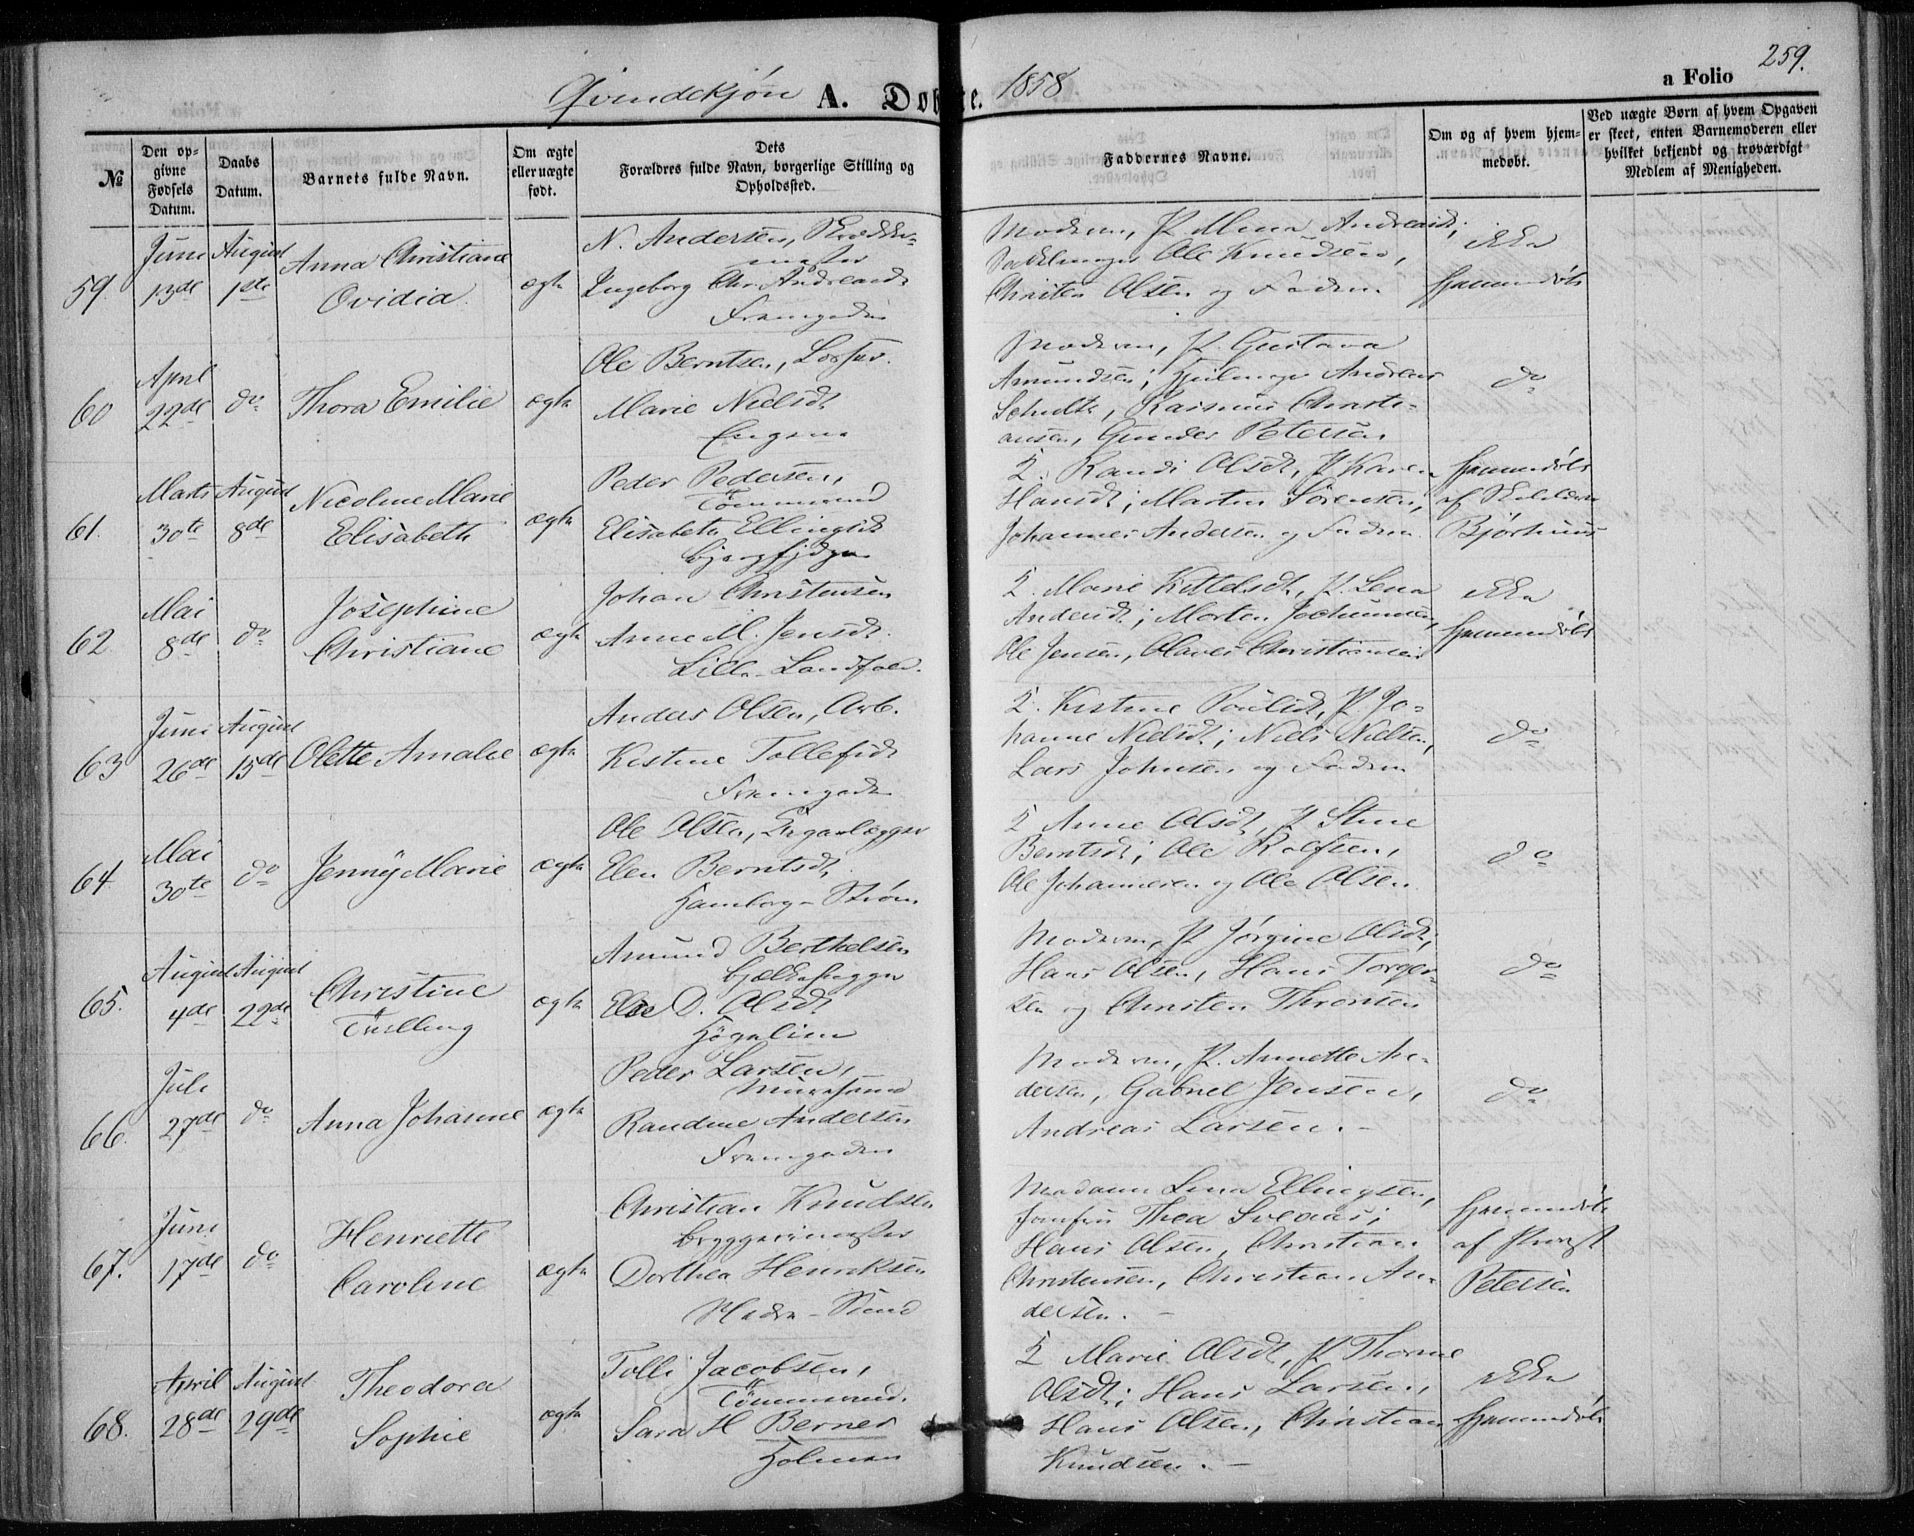 259.
Qvendekjøn A. Døbte. 1858 a Folio
№
Den op-
givne
Fødsels
Datum.
Daabs
Datum.
Barnets fulde Navn.
Om ægte
eller uægte
født.
Dets
Forældres fulde Navn, borgerlige Stilling og
Opholdssted.
Faddernes Navne.
Om og af hvem hjem-
medøbt.
Ved uægte Børn af hvem Opgaven
er skeet, enten Barnemoderen eller
hvilket bekjendt og troværdigt
Medlem af Menigheden.
59.
Juni
13de
August
1ste
Anna Christiane
Ovidia
ægte
N. Andersen,
Ingeborg Chr. Andreasdt
Framgaden
Moderen, P. Mina Andreasdt;
Ole Knudsen,
Christen Olsen og Faderen
ikke
hjemmedøbt
60
April
22de
do
Thora Emilie
ægte
Ole Berntsen,
Marie Nielsdt
Engene
Moderen, P. Gustava
Amundsen; Andreas
Schulte, Rasmus Christi-
ansen, Gunder Petersen
do
61.
Marts
30te
August
8de
Nicoline Marie
Elisabeth
ægte
Peder Pedersen,
Tömmermd
Elisabeth Ellingsdt
Randi Olsdt, P. Karen
Hansdt; Martin Sörensen,
Johannes Andersen og Faderen
hjemmedøbt
af Skolelærer
Bjørhuus
62
Mai
8de
do
Josephine
Christiane
ægte
Johan Christensen
Anne M. Jensdt.
Lille-Landfald.
Marie Kittelsdt, P. Lena
Andersdt; Morten Jochumsen,
Ole Jensen, Olaves Christiansen
ikke
hjemmedøbt
63
Juni
26de
August
15de
Olette Amalie
ægte
Anders Olsen, Arb.
Kistine Tollefsdt
Framgaden
Kistine Poulsdt, P. Jo-
hanne Nielsdt; Niels Nielsen,
Lars Johnsen og Faderen
do
64
Mai
30te
do
Jenny Marie
ægte
Ole Olsen,
Elen Berntsdt,
Hamborg-Strøm
Anne Olsdt, P. Stine
Berntsdt; Ole Rolfsen,
Ole Johannesen og Ole Olsen
do
65.
August
4de
August
22de
Christine
Tvilling
ægte
Amund Berthelsen
Bjelkehugger
D. Olsdt
Moderen, P. Jørgine Olsdt;
Hans Olsen, Hans Torger-
sen og Christen Thronsen
do
66.
Juli
27de
do
Anna Johanne
ægte
Peder Larsen,
Muursvend
Randine Andersen
Framgaden
Moderen, P. Annette An-
dersen, Gabriel Jensen,
Andreas Larsen. -
do
67.
Juni
17de
do
Henriette
Caroline
ægte
Christian Knudsen
Bryggerimester
Dorthea Henriksen
Madame Lina Ellingsen,
Jomfru Thea Svenæs;
Hans Olsen, Christian
Christensen, Christian An-
dersen. -
hjemmedøbt
af Præst
Petersen
68.
April
28de
August
29de
Theodora
Sophie
ægte
Tolli Jacobsen,
Tömmermd.
Sara H Berner
Holmen
Marie Olsdt, P. Thorine
Olsdt; Hans Larsen,
Hans Olsen, Christian
Knudsen. -
ikke
hjemmedøbt